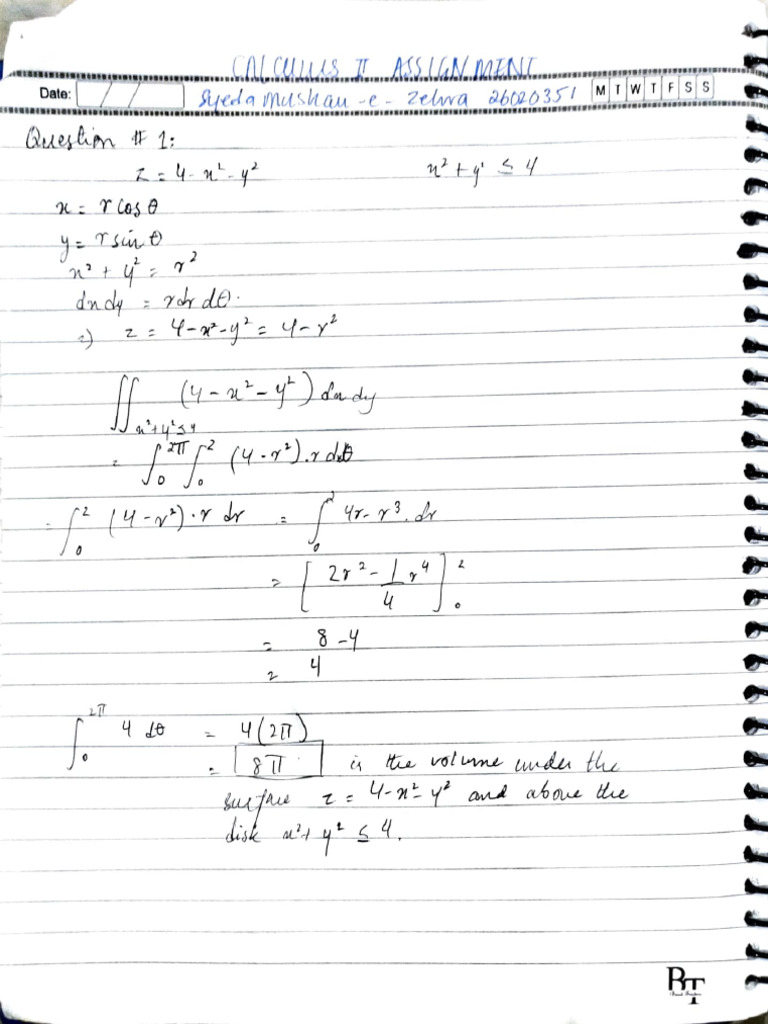 CALCULUS II ASSIGNMENT
Date: / / Syeda Muskan-e-Zehra 26020351 M T W T F S S
Question # 1:
z = 4 - x² - y² x² + y² ≤ 4
x = r cos θ
y = r sin θ
x² + y² = r²
dxdy = rdr dθ.
⇒) z = 4 - x² - y² = 4 - r²
∬ x²+y²≤4 (4 - x² - y²) dx dy
= ∫₀^2π ∫₀² (4 - r²).r drdθ
= ∫₀² (4 - r²).r dr = ∫₀² 4r - r³. dr
= [2r² - 1/4 r⁴]₀²
= 8 - 4
= 4
∫₀^2π 4 dθ = 4(2π)
= 8π is the volume under the
surface z = 4 - x² - y² and above the
disk x² + y² ≤ 4.
RT